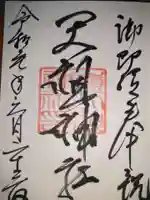 御即位奉祝
天祖神社
令和元年 月二十 日